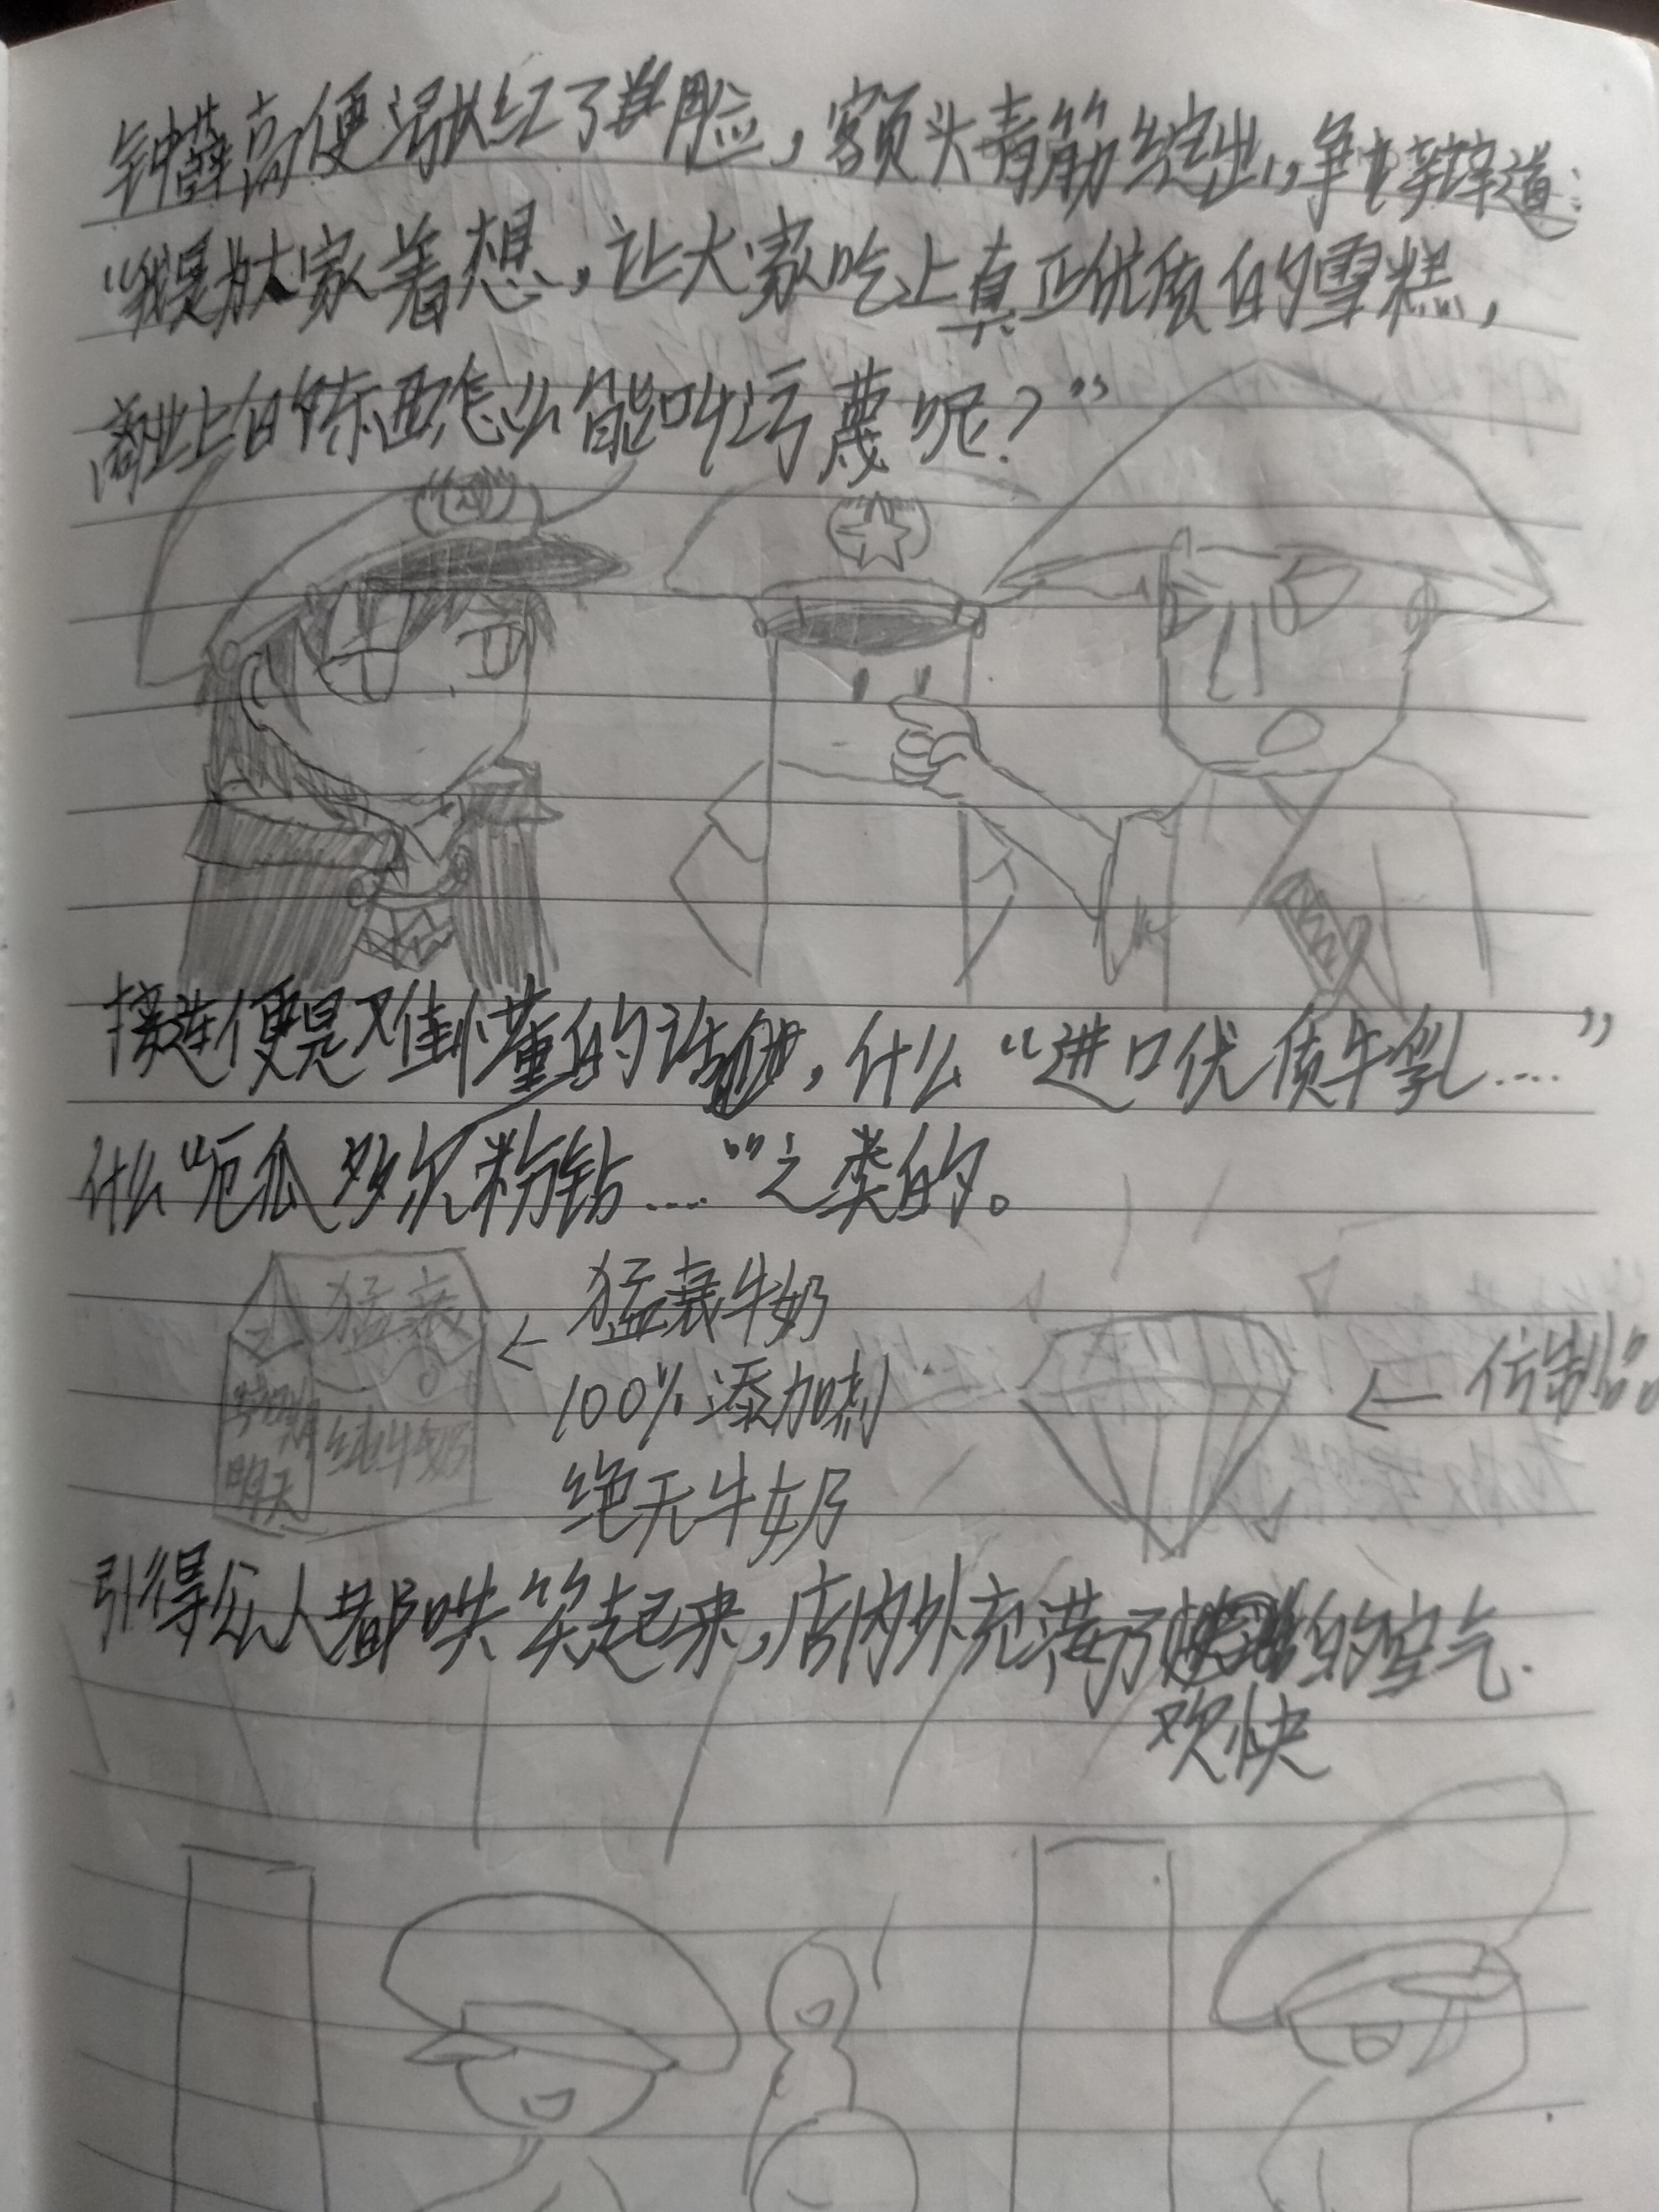 钟薛高便涨红了脸，额头青筋绽出，争辩道：
“我是为大家着想，让大家吃上真正优质的雪糕，
商业上的东西怎么能叫污蔑呢？”
接连便是难懂的话，什么“进口优质牛乳....”
什么“厄瓜多尔粉钻....”之类的。
猛衰
日期
明天
纯牛奶
猛衰牛奶
100%添加剂
绝无牛奶
仿制品
引得众人都哄笑起来，店内外充满了的空气.
欢快